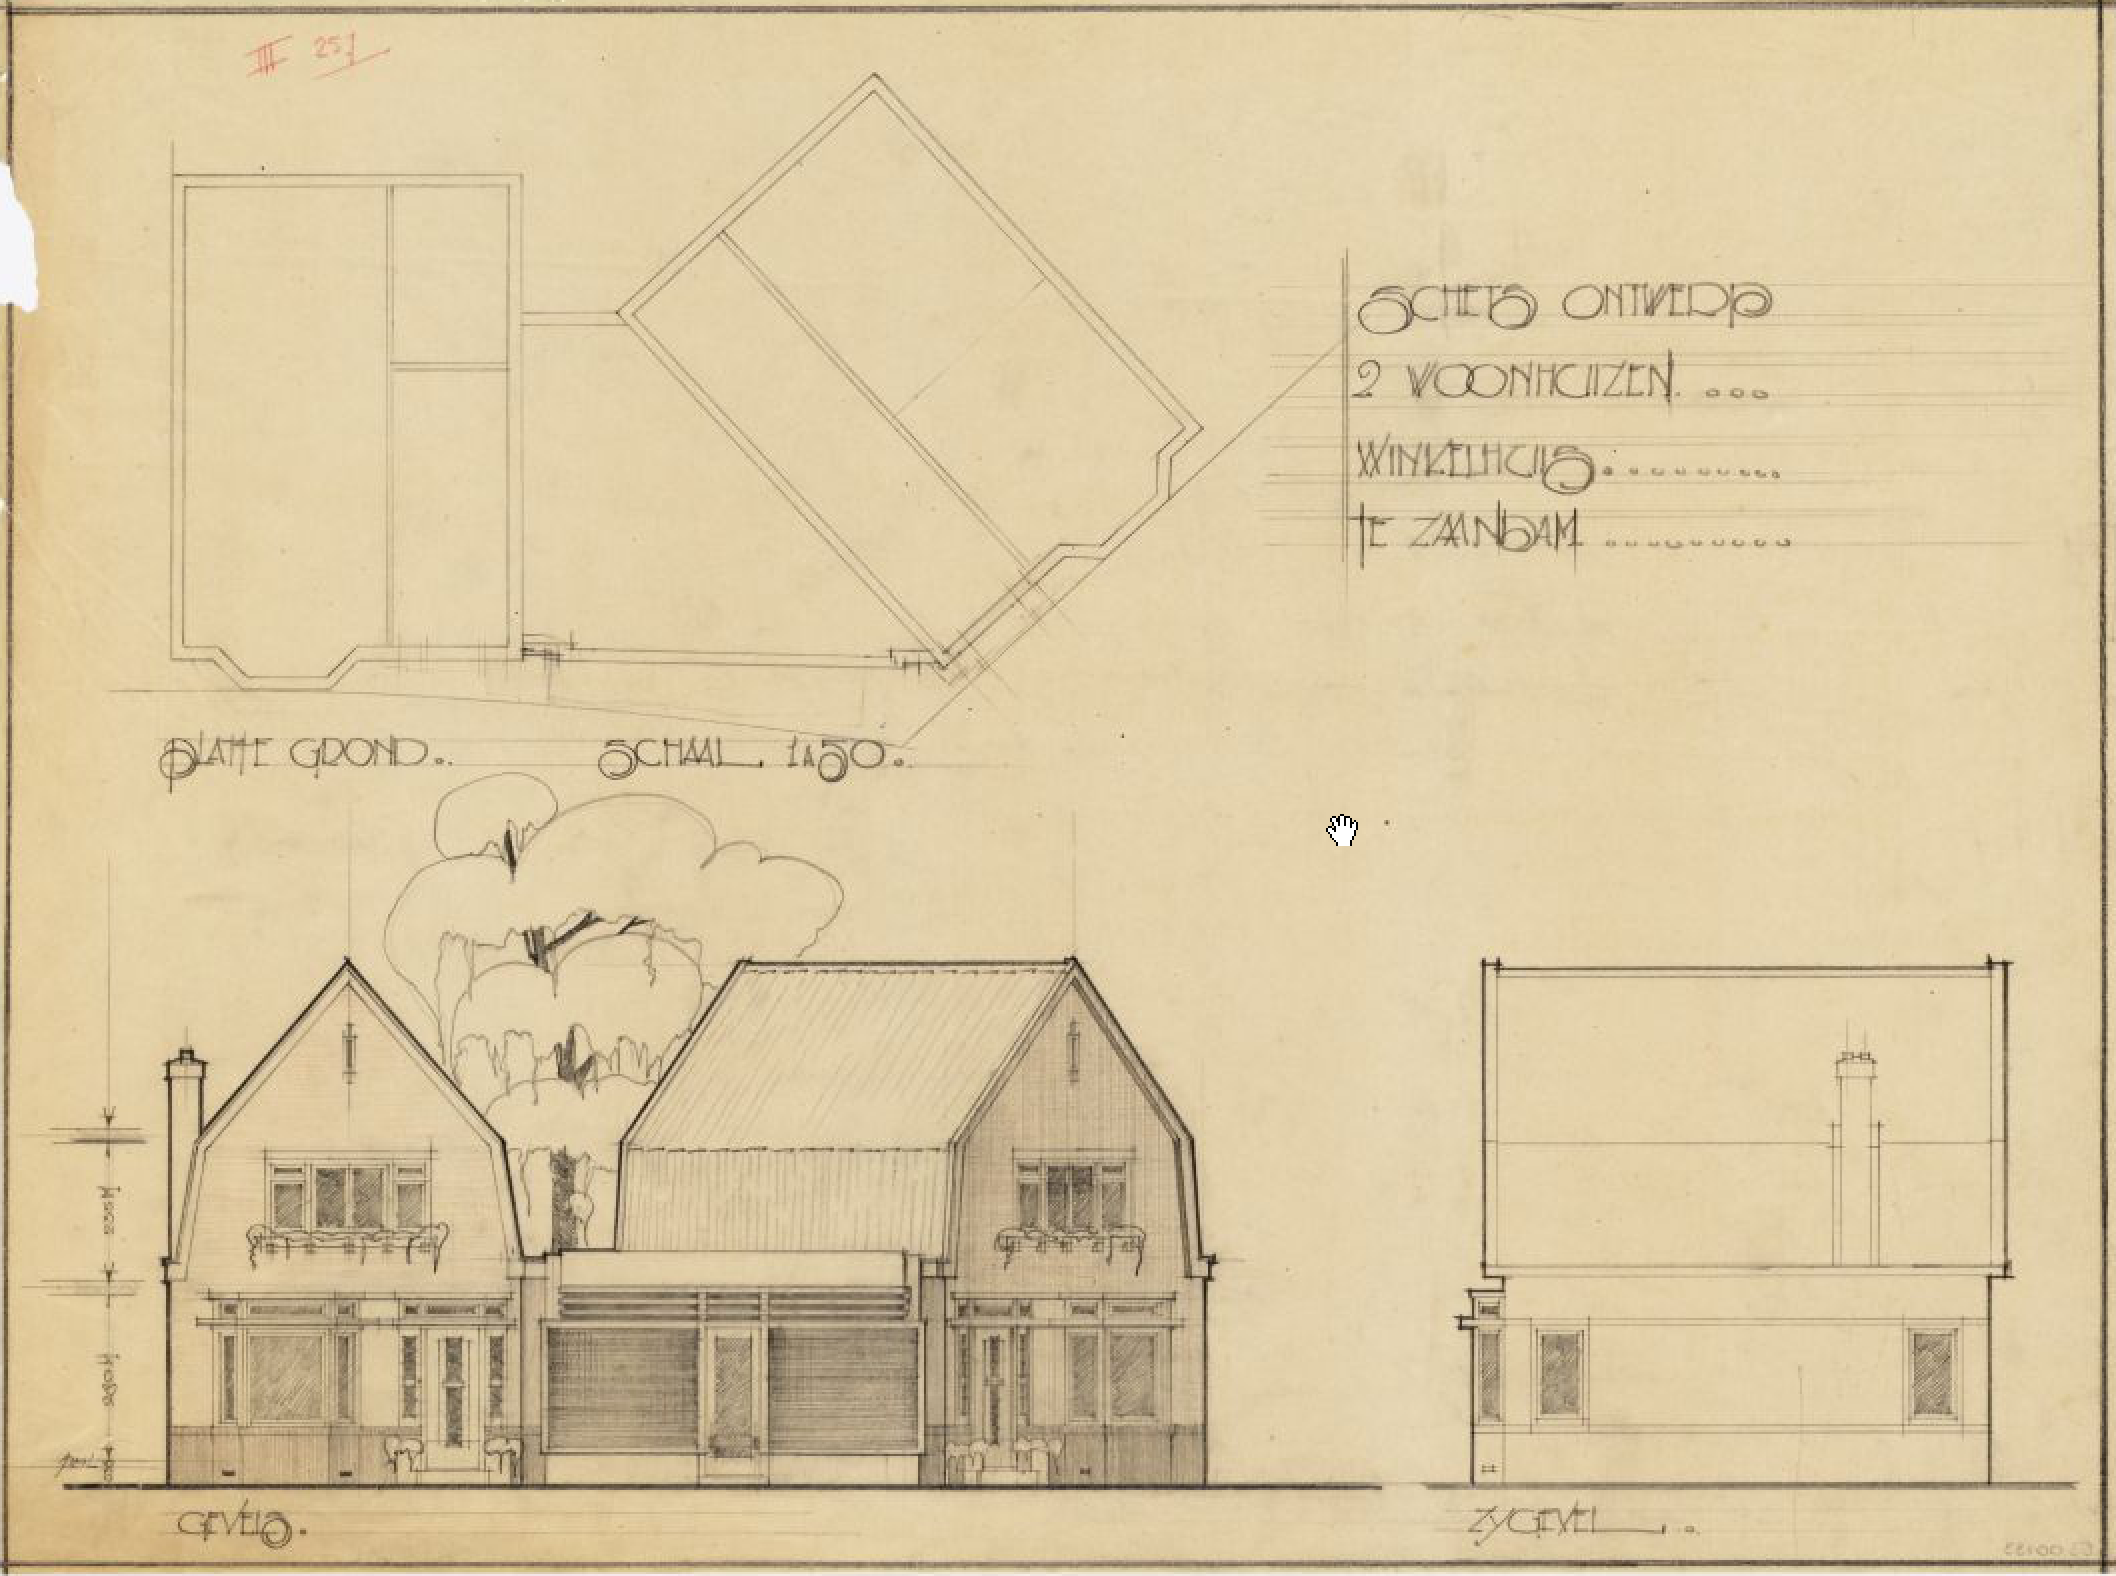 III 251
SCHETS ONTWERP
2 WOONHUIZEN. ...
WINKELHUIS..........
TE ZAANDAM..........
PLATTE GROND.. SCHAAL. 1 A 50.
GEVELS.
ZYGEVEL. .